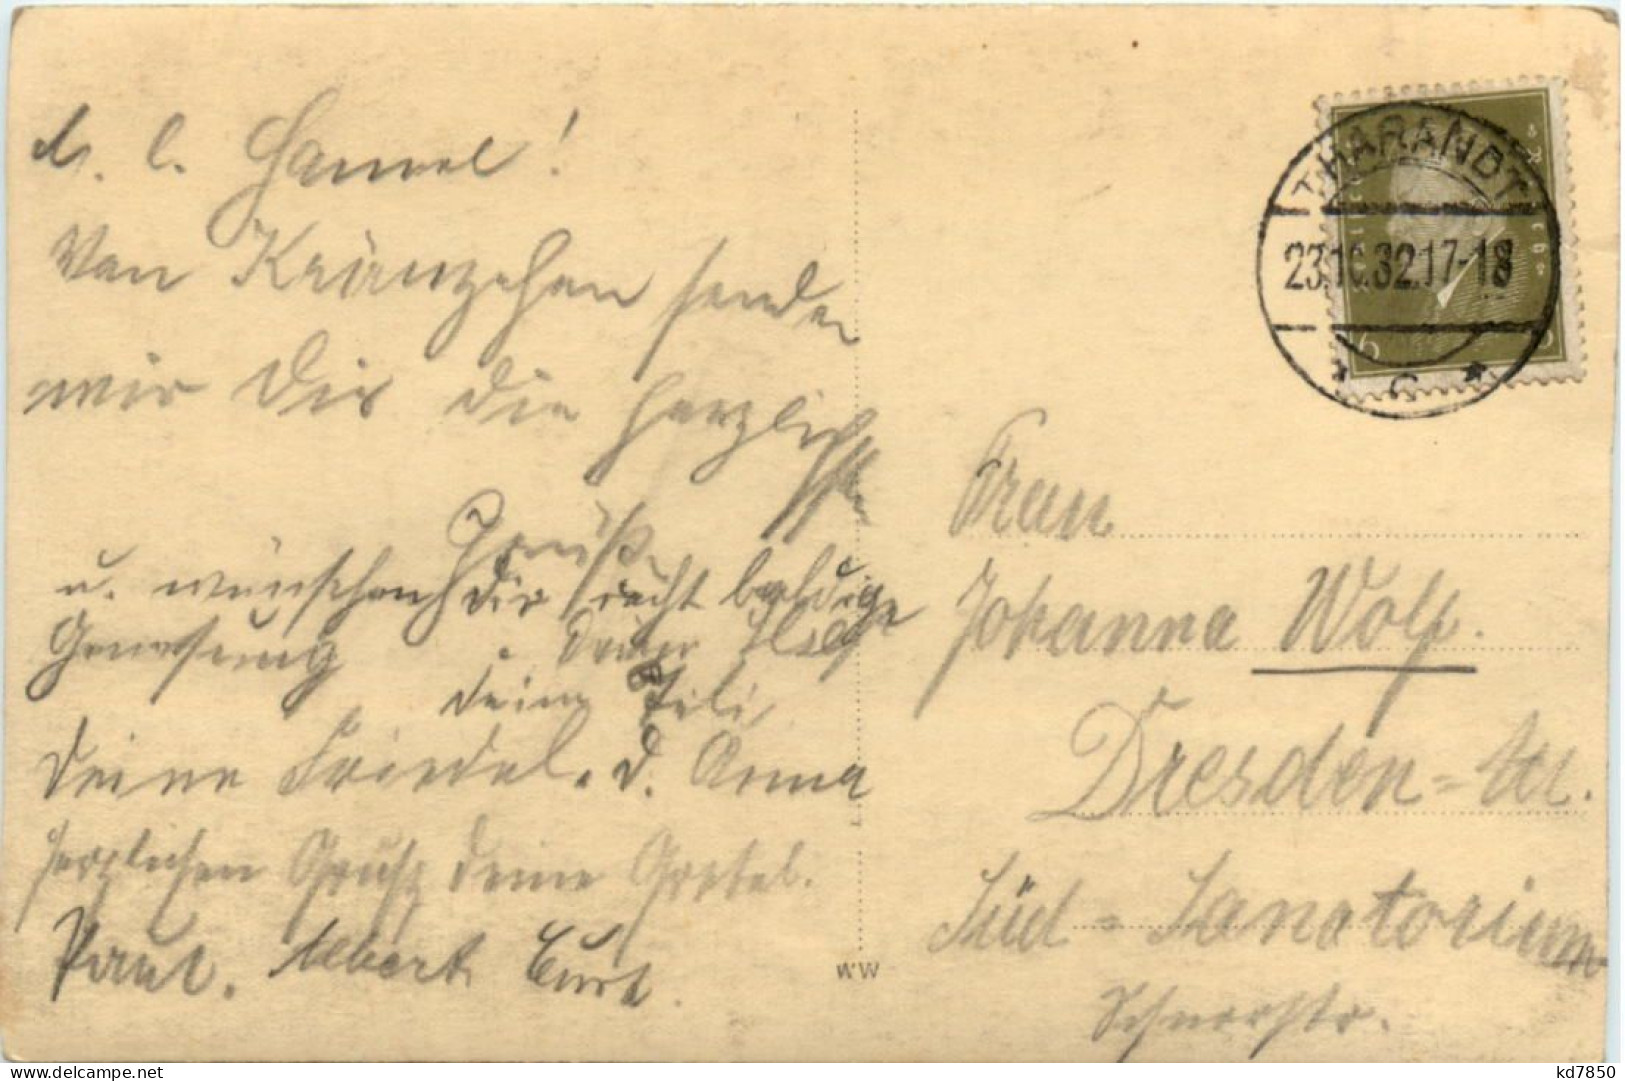 M. l. Hannel!
Von Kränzchen senden
wir Dir die herzlichsten
Grüße
u. wünschen dir recht baldige
Genesung. Deine Ilse
Deine Lili
Deine Friedel. D. Anna
herzlichen Gruß deine Gretel.
Paul. Albert Curt.
THARANDT
23.10.32.17-18
* c *
6
Frau
Johanna Wolf.
Dresden=A.
Süd=Sanatorium
Schnorrstr.
WW
kd7850